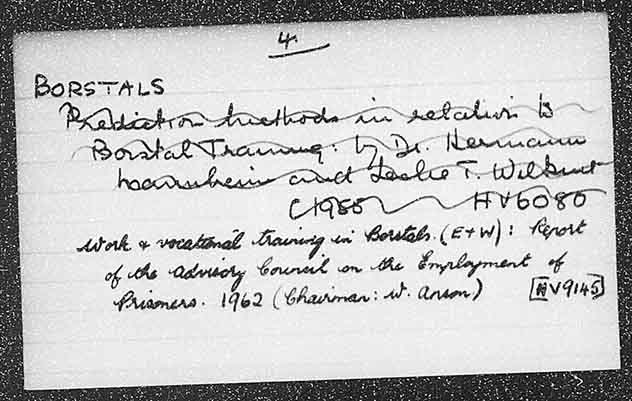 4.
BORSTALS
Prediction methods in relation to
Borstal Training. by Dr. Hermann
Mannheim and Leslie T. Wilkins
C1955 HV6080
Work & vocational training in Borstals. (E+W): Report
of the Advisory Council on the Employment of
Prisoners. 1962 (Chairman: W. Anson)
[HV9145]